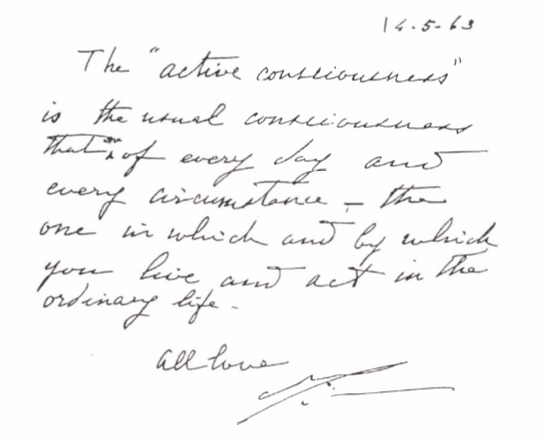 14-5-63
The "active consciousness"
is the usual consciousness
that of every day and
every circumstance – the
one in which and by which
you live and act in the
ordinary life.
All love